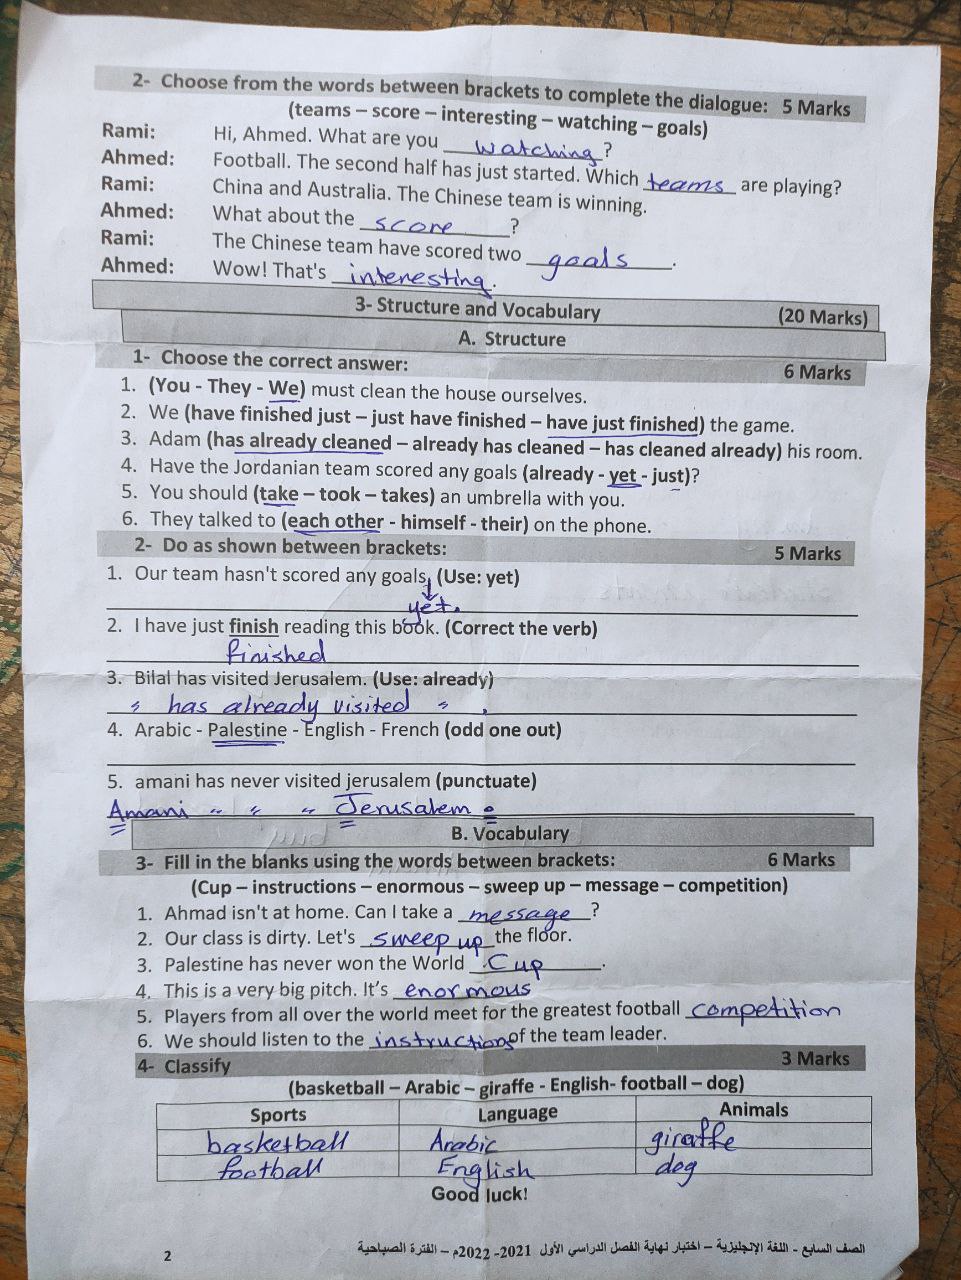 2- Choose from the words between brackets to complete the dialogue: 5 Marks
(teams – score – interesting – watching – goals)
Rami: Hi, Ahmed. What are you watching?
Ahmed: Football. The second half has just started. Which teams are playing?
Rami: China and Australia. The Chinese team is winning.
Ahmed: What about the score?
Rami: The Chinese team have scored two goals.
Ahmed: Wow! That's interesting.
3- Structure and Vocabulary (20 Marks)
A. Structure
1- Choose the correct answer: 6 Marks
1. (You - They - We) must clean the house ourselves.
2. We (have finished just – just have finished – have just finished) the game.
3. Adam (has already cleaned – already has cleaned – has cleaned already) his room.
4. Have the Jordanian team scored any goals (already - yet - just)?
5. You should (take – took – takes) an umbrella with you.
6. They talked to (each other - himself - their) on the phone.
2- Do as shown between brackets: 5 Marks
1. Our team hasn't scored any goals. (Use: yet)
yet.
2. I have just finish reading this book. (Correct the verb)
finished
3. Bilal has visited Jerusalem. (Use: already)
" has already visited " .
4. Arabic - Palestine - English - French (odd one out)
5. amani has never visited jerusalem (punctuate)
Amani " " " Jerusalem .
B. Vocabulary
3- Fill in the blanks using the words between brackets: 6 Marks
(Cup – instructions – enormous – sweep up – message – competition)
1. Ahmad isn't at home. Can I take a message?
2. Our class is dirty. Let's sweep up the floor.
3. Palestine has never won the World Cup.
4. This is a very big pitch. It's enormous
5. Players from all over the world meet for the greatest football competition
6. We should listen to the instructions of the team leader.
4- Classify 3 Marks
(basketball – Arabic – giraffe - English- football – dog)
Sports Language Animals
basketball Arabic giraffe
football English dog
Good luck!
2 الصف السابع - اللغة الإنجليزية – اختبار نهاية الفصل الدراسي الأول 2021- 2022م – الفترة الصباحية